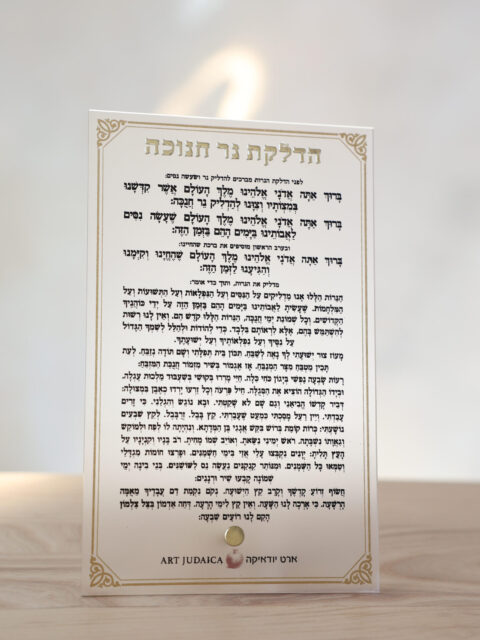 הדלקת נר חנוכה
לפני הדלקת הנרות מברכים להדליק נר ושעשה נסים:
בָּרוּךְ אַתָּה אֲדֹנָי אֱלֹהֵינוּ מֶלֶךְ הָעוֹלָם אֲשֶׁר קִדְּשָׁנוּ
בְּמִצְוֹתָיו וְצִוָּנוּ לְהַדְלִיק נֵר חֲנֻכָּה:
בָּרוּךְ אַתָּה אֲדֹנָי אֱלֹהֵינוּ מֶלֶךְ הָעוֹלָם שֶׁעָשָׂה נִסִּים
לַאֲבוֹתֵינוּ בַּיָּמִים הָהֵם בַּזְּמַן הַזֶּה:
ובערב הראשון מוסיפים את ברכת שהחיינו:
בָּרוּךְ אַתָּה אֲדֹנָי אֱלֹהֵינוּ מֶלֶךְ הָעוֹלָם שֶׁהֶחֱיָנוּ וְקִיְּמָנוּ
וְהִגִּיעָנוּ לַזְּמַן הַזֶּה:
מדליק את הנרות, ותוך כדי אומר:
הַנֵּרוֹת הַלָּלוּ אָנוּ מַדְלִיקִים עַל הַנִּסִּים וְעַל הַנִּפְלָאוֹת וְעַל הַתְּשׁוּעוֹת וְעַל
הַמִּלְחָמוֹת. שֶׁעָשִׂיתָ לַאֲבוֹתֵינוּ בַּיָּמִים הָהֵם בַּזְּמַן הַזֶּה עַל יְדֵי כֹּהֲנֶיךָ
הַקְּדוֹשִׁים. וְכָל שְׁמוֹנַת יְמֵי חֲנֻכָּה, הַנֵּרוֹת הַלָּלוּ קֹדֶשׁ הֵם. וְאֵין לָנוּ רְשׁוּת
לְהִשְׁתַּמֵּשׁ בָּהֶם, אֶלָּא לִרְאוֹתָם בִּלְבָד. כְּדֵי לְהוֹדוֹת וּלְהַלֵּל לְשִׁמְךָ הַגָּדוֹל
עַל נִסֶּיךָ וְעַל נִפְלְאוֹתֶיךָ וְעַל יְשׁוּעָתֶךָ.
מָעוֹז צוּר יְשׁוּעָתִי לְךָ נָאֶה לְשַׁבֵּחַ. תִּכּוֹן בֵּית תְּפִלָּתִי וְשָׁם תּוֹדָה נְזַבֵּחַ. לְעֵת
תָּכִין מַטְבֵּחַ מִצָּר הַמְנַבֵּחַ. אָז אֶגְמוֹר בְּשִׁיר מִזְמוֹר חֲנֻכַּת הַמִּזְבֵּחַ:
רָעוֹת שָׂבְעָה נַפְשִׁי בְּיָגוֹן כֹּחִי כָּלָה. חַיַּי מֵרְרוּ בְּקוּשִׁי בְּשִׁעְבּוּד מַלְכוּת עֶגְלָה.
וּבְיָדוֹ הַגְּדוֹלָה הוֹצִיא אֶת הַסְּגֻלָּה. חֵיל פַּרְעֹה וְכָל זַרְעוֹ יָרְדוּ כְּאֶבֶן בִּמְצוּלָה:
דְּבִיר קָדְשׁוֹ הֱבִיאַנִי וְגַם שָׁם לֹא שָׁקַטְתִּי. וּבָא נוֹגֵשׂ וְהִגְלַנִי. כִּי זָרִים
עָבַדְתִּי. וְיֵין רַעַל מָסַכְתִּי כִּמְעַט שֶׁעָבַרְתִּי. קֵץ בָּבֶל. זְרֻבָּבֶל. לְקֵץ שִׁבְעִים
נוֹשָׁעְתִּי: כְּרוֹת קוֹמַת בְּרוֹשׁ בִּקֵּשׁ אֲגָגִי בֶּן הַמְּדָתָא. וְנִהְיָתָה לוֹ לְפַח וּלְמוֹקֵשׁ
וְגַאֲוָתוֹ נִשְׁבָּתָה. רֹאשׁ יְמִינִי נִשֵּׂאתָ. וְאוֹיֵב שְׁמוֹ מָחִיתָ. רֹב בָּנָיו וְקִנְיָנָיו עַל
הָעֵץ תָּלִיתָ: יְוָנִים נִקְבְּצוּ עָלַי אֲזַי בִּימֵי חַשְׁמַנִּים. וּפָרְצוּ חוֹמוֹת מִגְדָּלַי
וְטִמְּאוּ כָּל הַשְּׁמָנִים. וּמִנּוֹתַר קַנְקַנִּים נַעֲשָׂה נֵס לַשּׁוֹשַׁנִּים. בְּנֵי בִינָה יְמֵי
שְׁמוֹנָה קָבְעוּ שִׁיר וּרְנָנִים:
חֲשׂוֹף זְרוֹעַ קָדְשֶׁךָ וְקָרֵב קֵץ הַיְשׁוּעָה. נְקֹם נִקְמַת דַּם עֲבָדֶיךָ מֵאֻמָּה
הָרְשָׁעָה. כִּי אָרְכָה לָנוּ הַשָּׁעָה. וְאֵין קֵץ לִימֵי הָרָעָה. דְּחֵה אַדְמוֹן בְּצֵל צַלְמוֹן
הָקֵם לָנוּ רוֹעִים שִׁבְעָה:
ART JUDAICA ארט יודאיקה